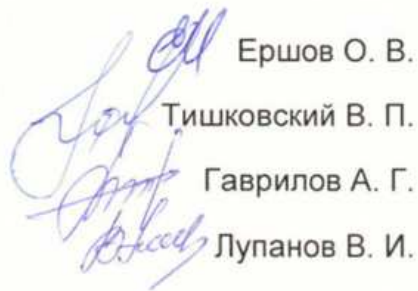 Ершов О. В.
Тишковский В. П.
Гаврилов А. Г.
Лупанов В. И.